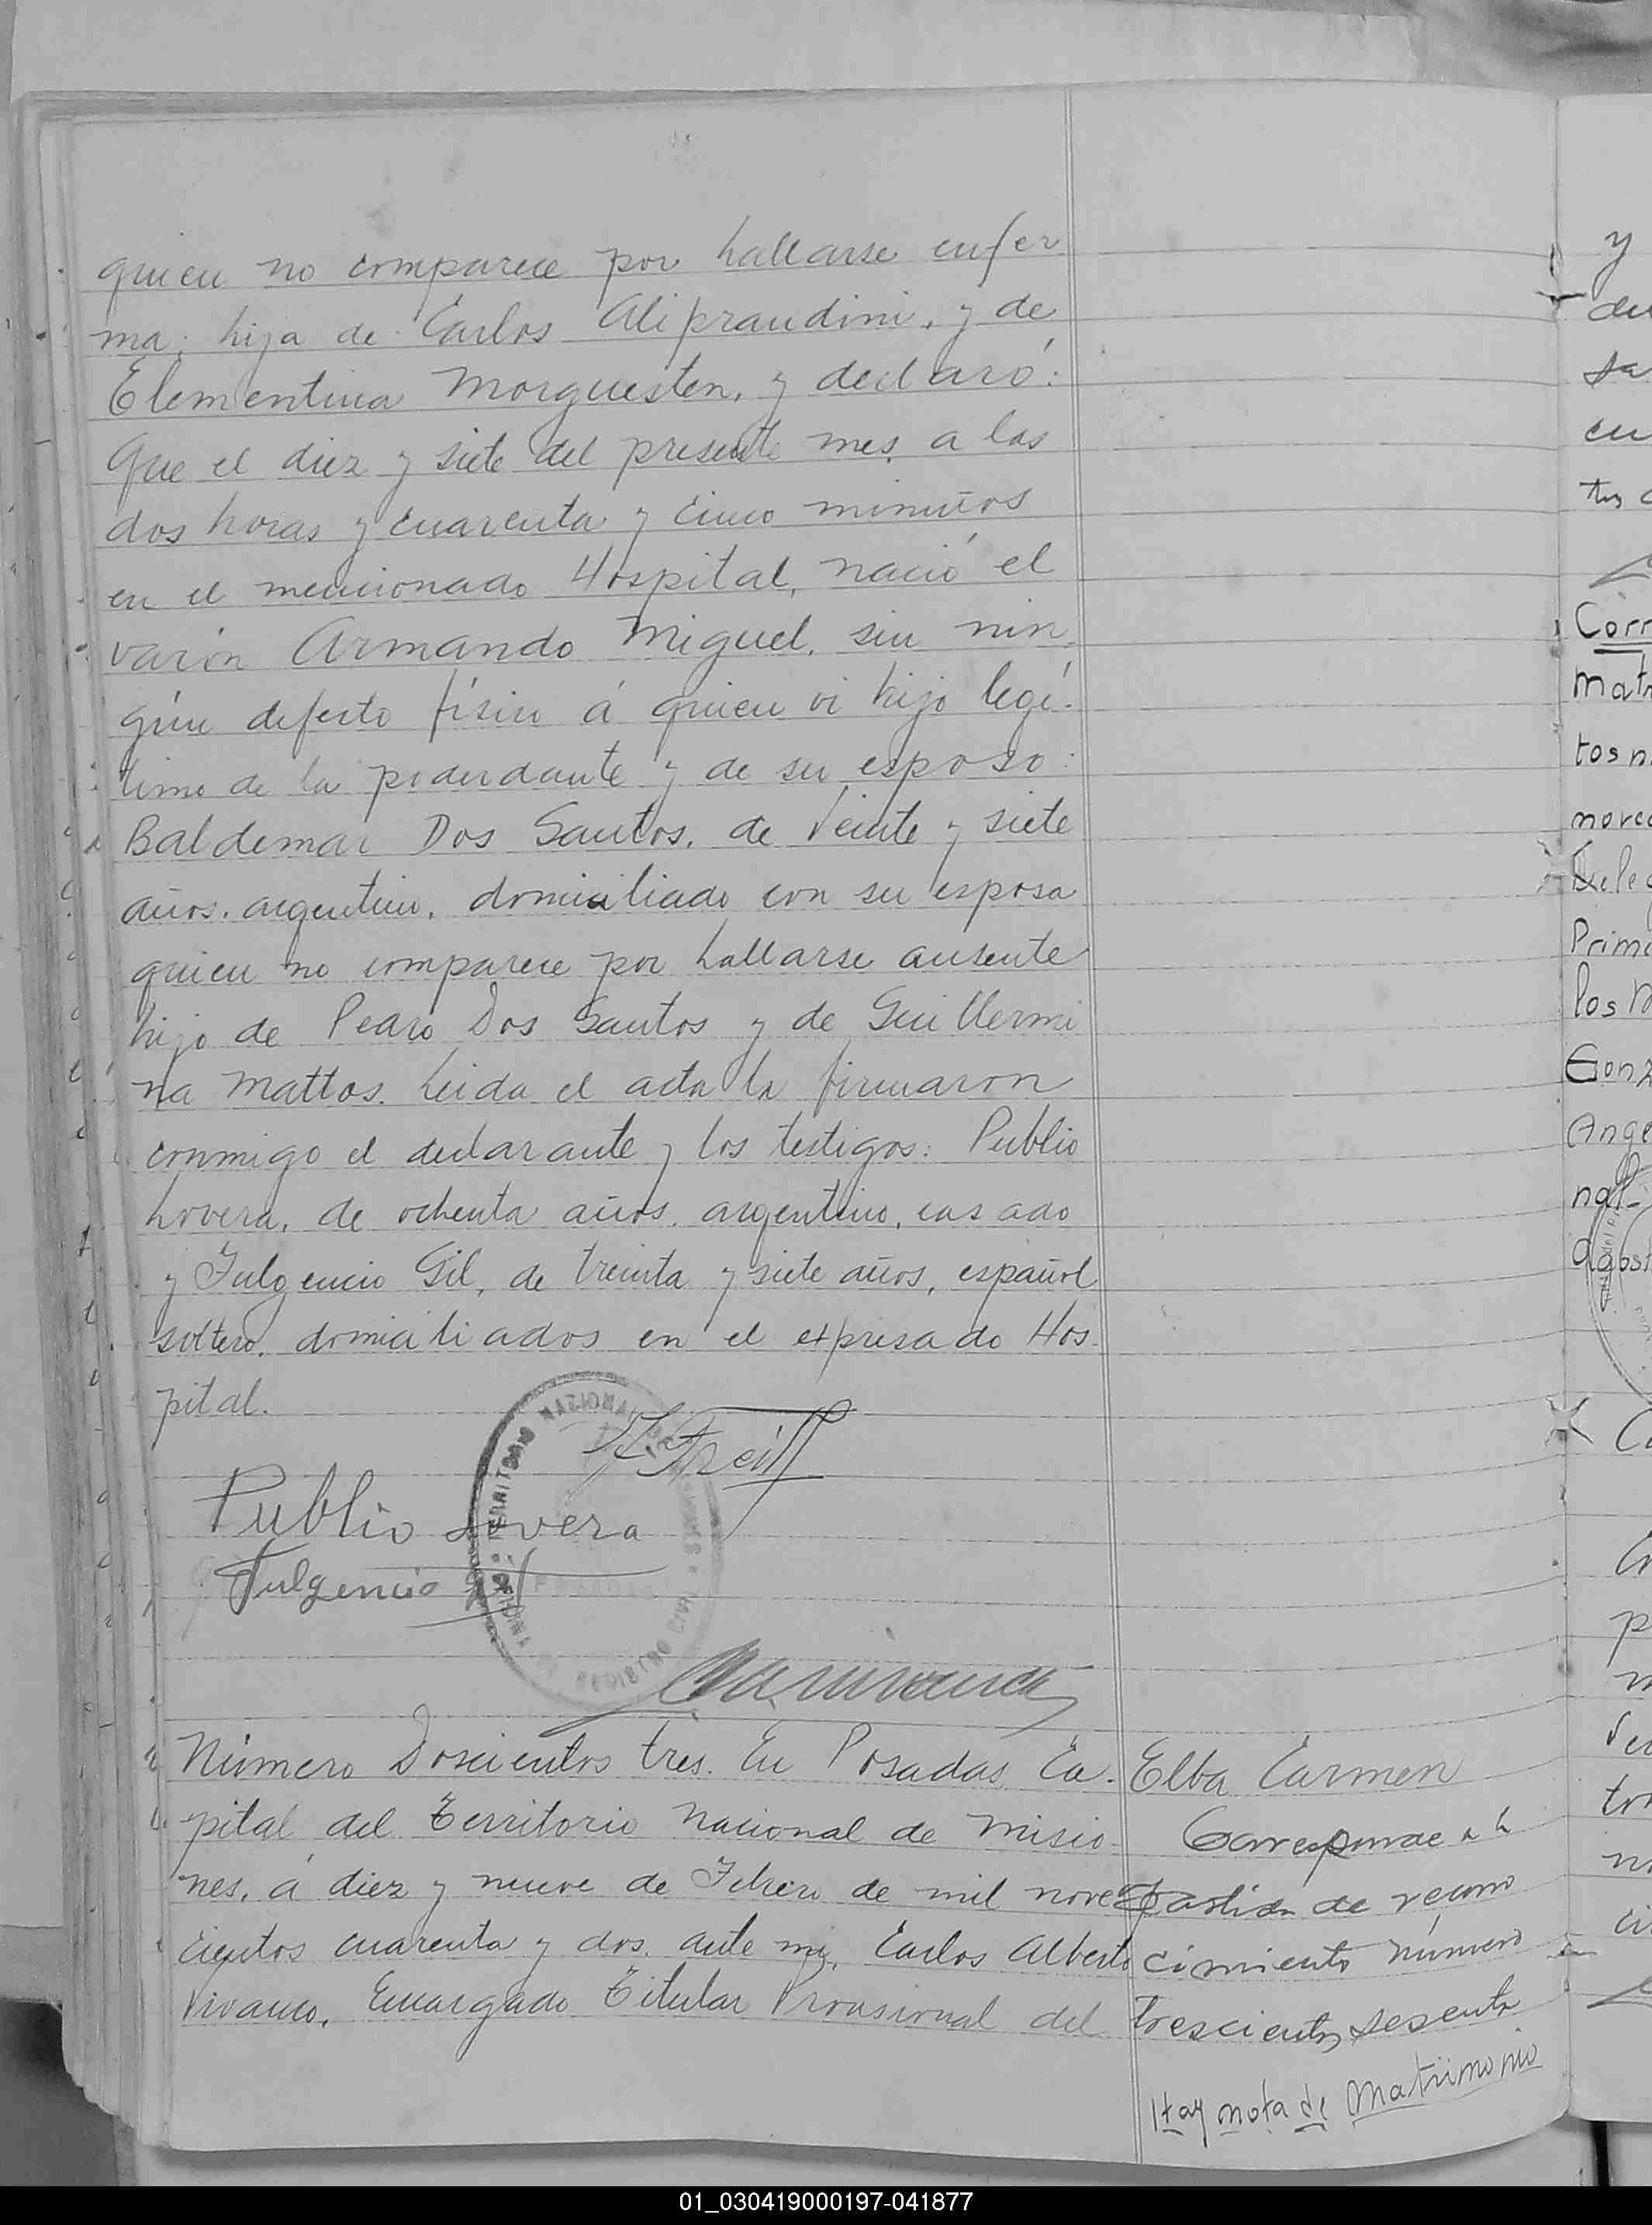 quien no comparece por hallarse enfer
ma; hija de Carlos Aliprandini, y de
Clementina Morguesten, y declaró:
Que el diez y siete del presente mes, a las
dos horas y cuarenta y cinco minutos
en el mencionado Hospital, nació el
varón Armando Miguel, sin nin
gún defecto físico á quien vi hijo legí-
timo de la poderdante y de su esposo:
Baldemar Dos Santos, de veinte y siete
años, argentino, domiciliado con su esposa
quien no comparece por hallarse ausente
hijo de Pedro Dos Santos y de Guillermi
na Mattos. Leida el acta la firmaron
conmigo el declarante y los testigos: Publio
Lovera, de ochenta años, argentino, casado
y Fulgencio Gil, de treinta y siete años, español
soltero, domiciliados en el expresado Hos
pital.
TERRITORIO NACIONAL
REGISTRO CIVIL
Publio Lovera
Fulgencio Gil
Número Doscientos tres. En Posadas, Ca-
pital del Territorio Nacional de Misio-
nes, á diez y nueve de Febrero de mil nove
cientos cuarenta y dos, ante mi, Carlos Alberto
Vivanco, Encargado Titular Provisional del
Elba Carmen
Corresponde a la
Partida de recono
cimiento número
trescientos sesenta
Hay nota de Matrimonio
y
sa
Corr
matr
tos n
nove
Dele
Prime
los
Gonz
Ange
nal-
Agost
01_030419000197-041877